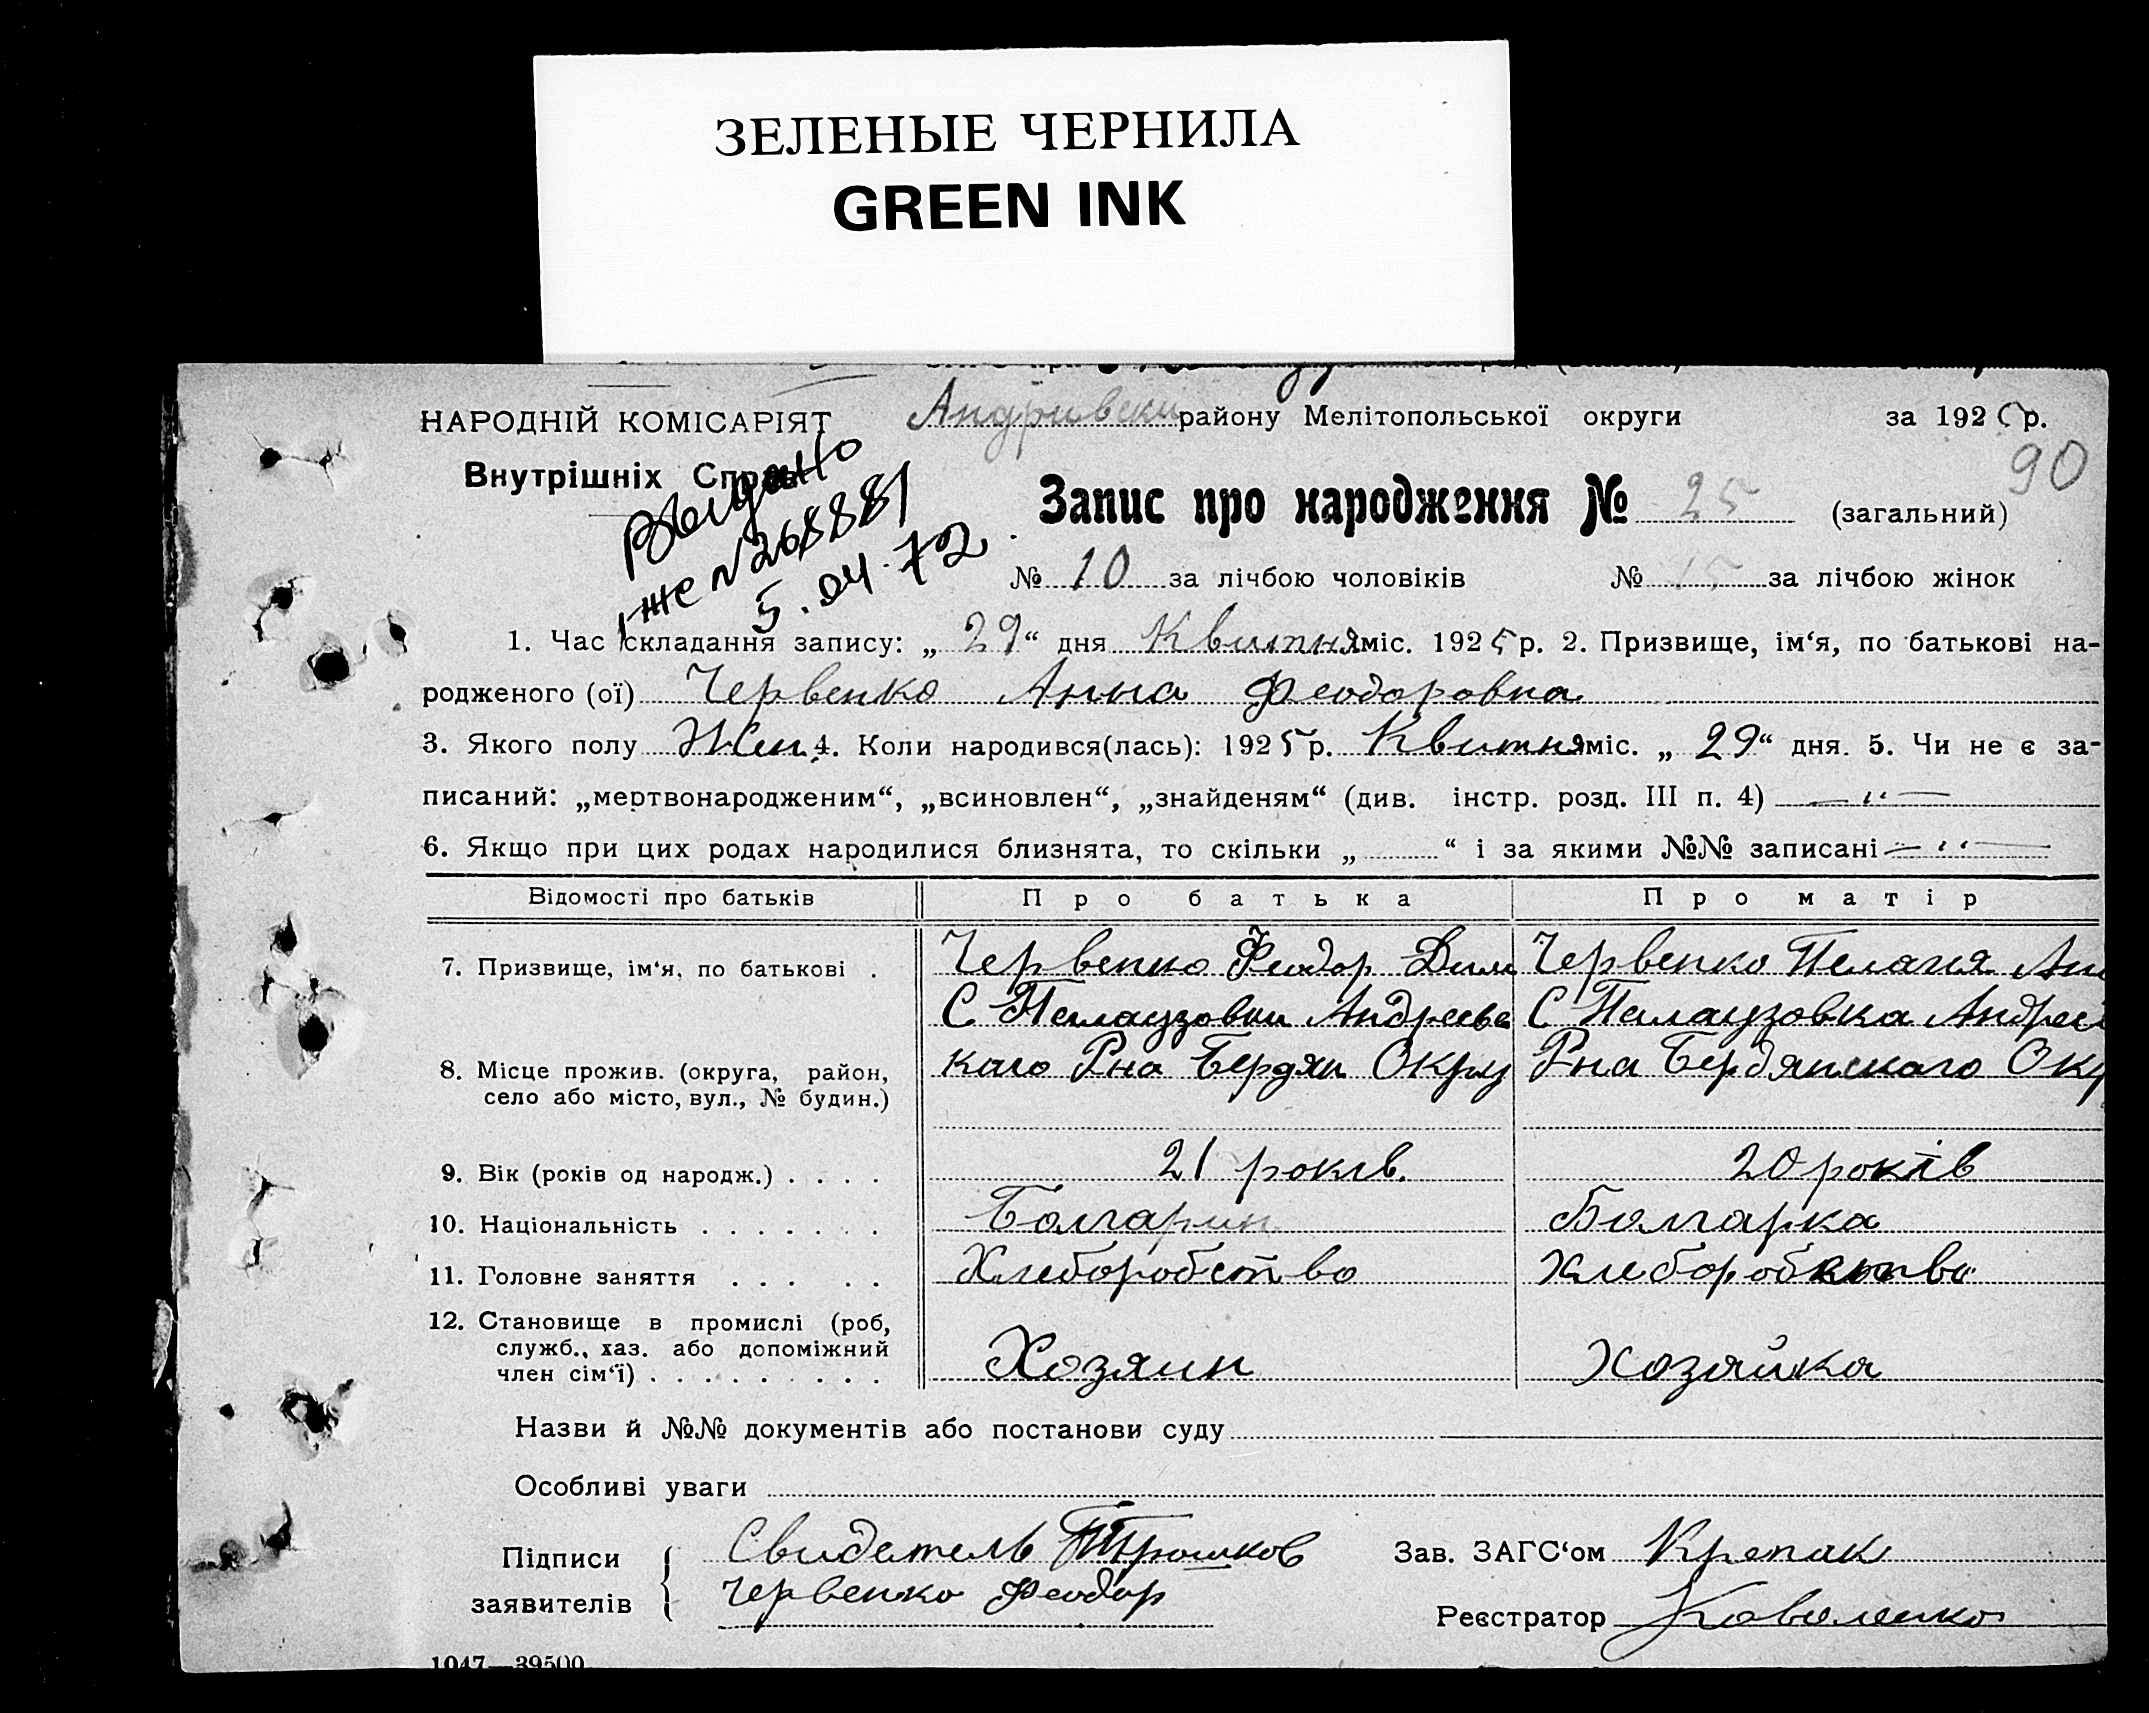 ЗЕЛЕНЫЕ ЧЕРНИЛА
GREEN INK
НАРОДНІЙ КОМІСАРІЯТ
Внутрішніх Справ
Андривски району Мелітопольської округи за 1925 р.
90
Выдано
1-же №268881
5.04.72
Запис про народження № 25 (загальний)
№ 10 за лічбою чоловіків № 15 за лічбою жінок
1. Час складання запису: „ 29 “ дня Квитня міс. 1925 р. 2. Призвище, ім‘я, по батькові на-
родженого (ої) Червенко Анна Феодоровна
3. Якого полу Жен. 4. Коли народився(лась): 1925 р. Квитня міс. „ 29 “ дня. 5. Чи не є за-
писаний: „мертвонародженим“, „всиновлен“, „знайденям“ (див. інстр. розд. III п. 4) — „ —
6. Якщо при цих родах народилися близнята, то скільки „ “ і за якими №№ записані — „ —
Відомості про батьків Про батька Про матір
7. Призвище, ім‘я, по батькові . Червенко Феодор Дим Червенко Пелагия Ан
С Палаузовки Андреевс С Палаузовка Андреев
8. Місце прожив. (округа, район, каго Рна Бердян Округ Рна Бердянскаго Окр
село або місто, вул., № будин.)
9. Вік (років од народж.) . . . . 21 років. 20 років
10. Національність . . . . . . . Болгарин Болгарка
11. Головне заняття . . . . . Хлеборобство Хлеборобство
12. Становище в промислі (роб,
служб., хаз. або допоміжний Хозяин Хозяйка
член сім‘ї) . . . . . . . . .
Назви й №№ документів або постанови суду
Особливі уваги
Підписи Свидетель Трошков Зав. ЗАГС‘ом Крепак
заявителів Червенко Феодор Реєстратор Коваленко
1047—39500